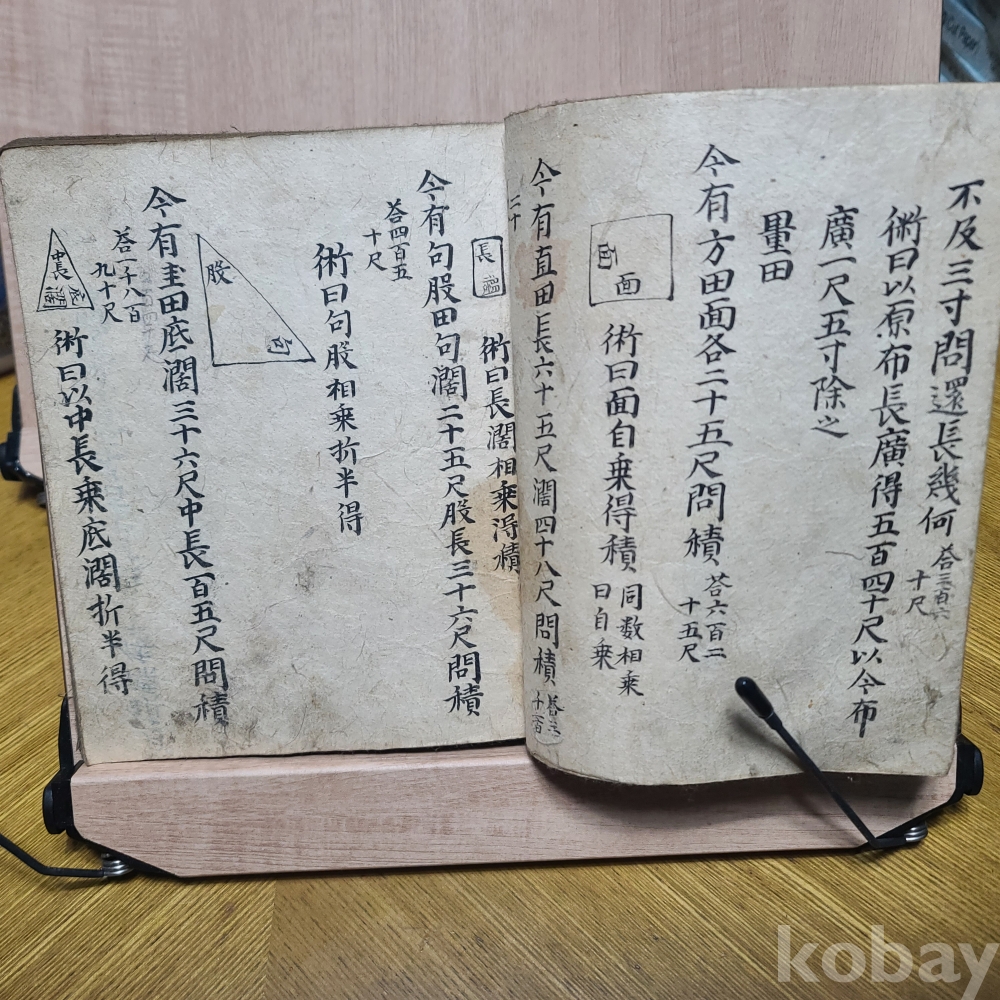 不及三寸問還長幾何 答三百六
十尺
術曰以原布長廣得五百四十尺以今布
廣一尺五寸除之
量田
今有方田面各二十五尺問積 答六百二
十五尺
面
面
術曰面自乗得積 同数相乗
曰自乗
今有直田長六十五尺濶四十八尺問積 答三
二十
長
濶
術曰長濶相乗得積
今有句股田句濶二十五尺股長三十六尺問積
答四百五
十尺
術曰句股相乗折半得
股
句
今有圭田底濶三十六尺中長百五尺問積
答一千八百
九十尺
中長
底濶
術曰以中長乗底濶折半得
kobay